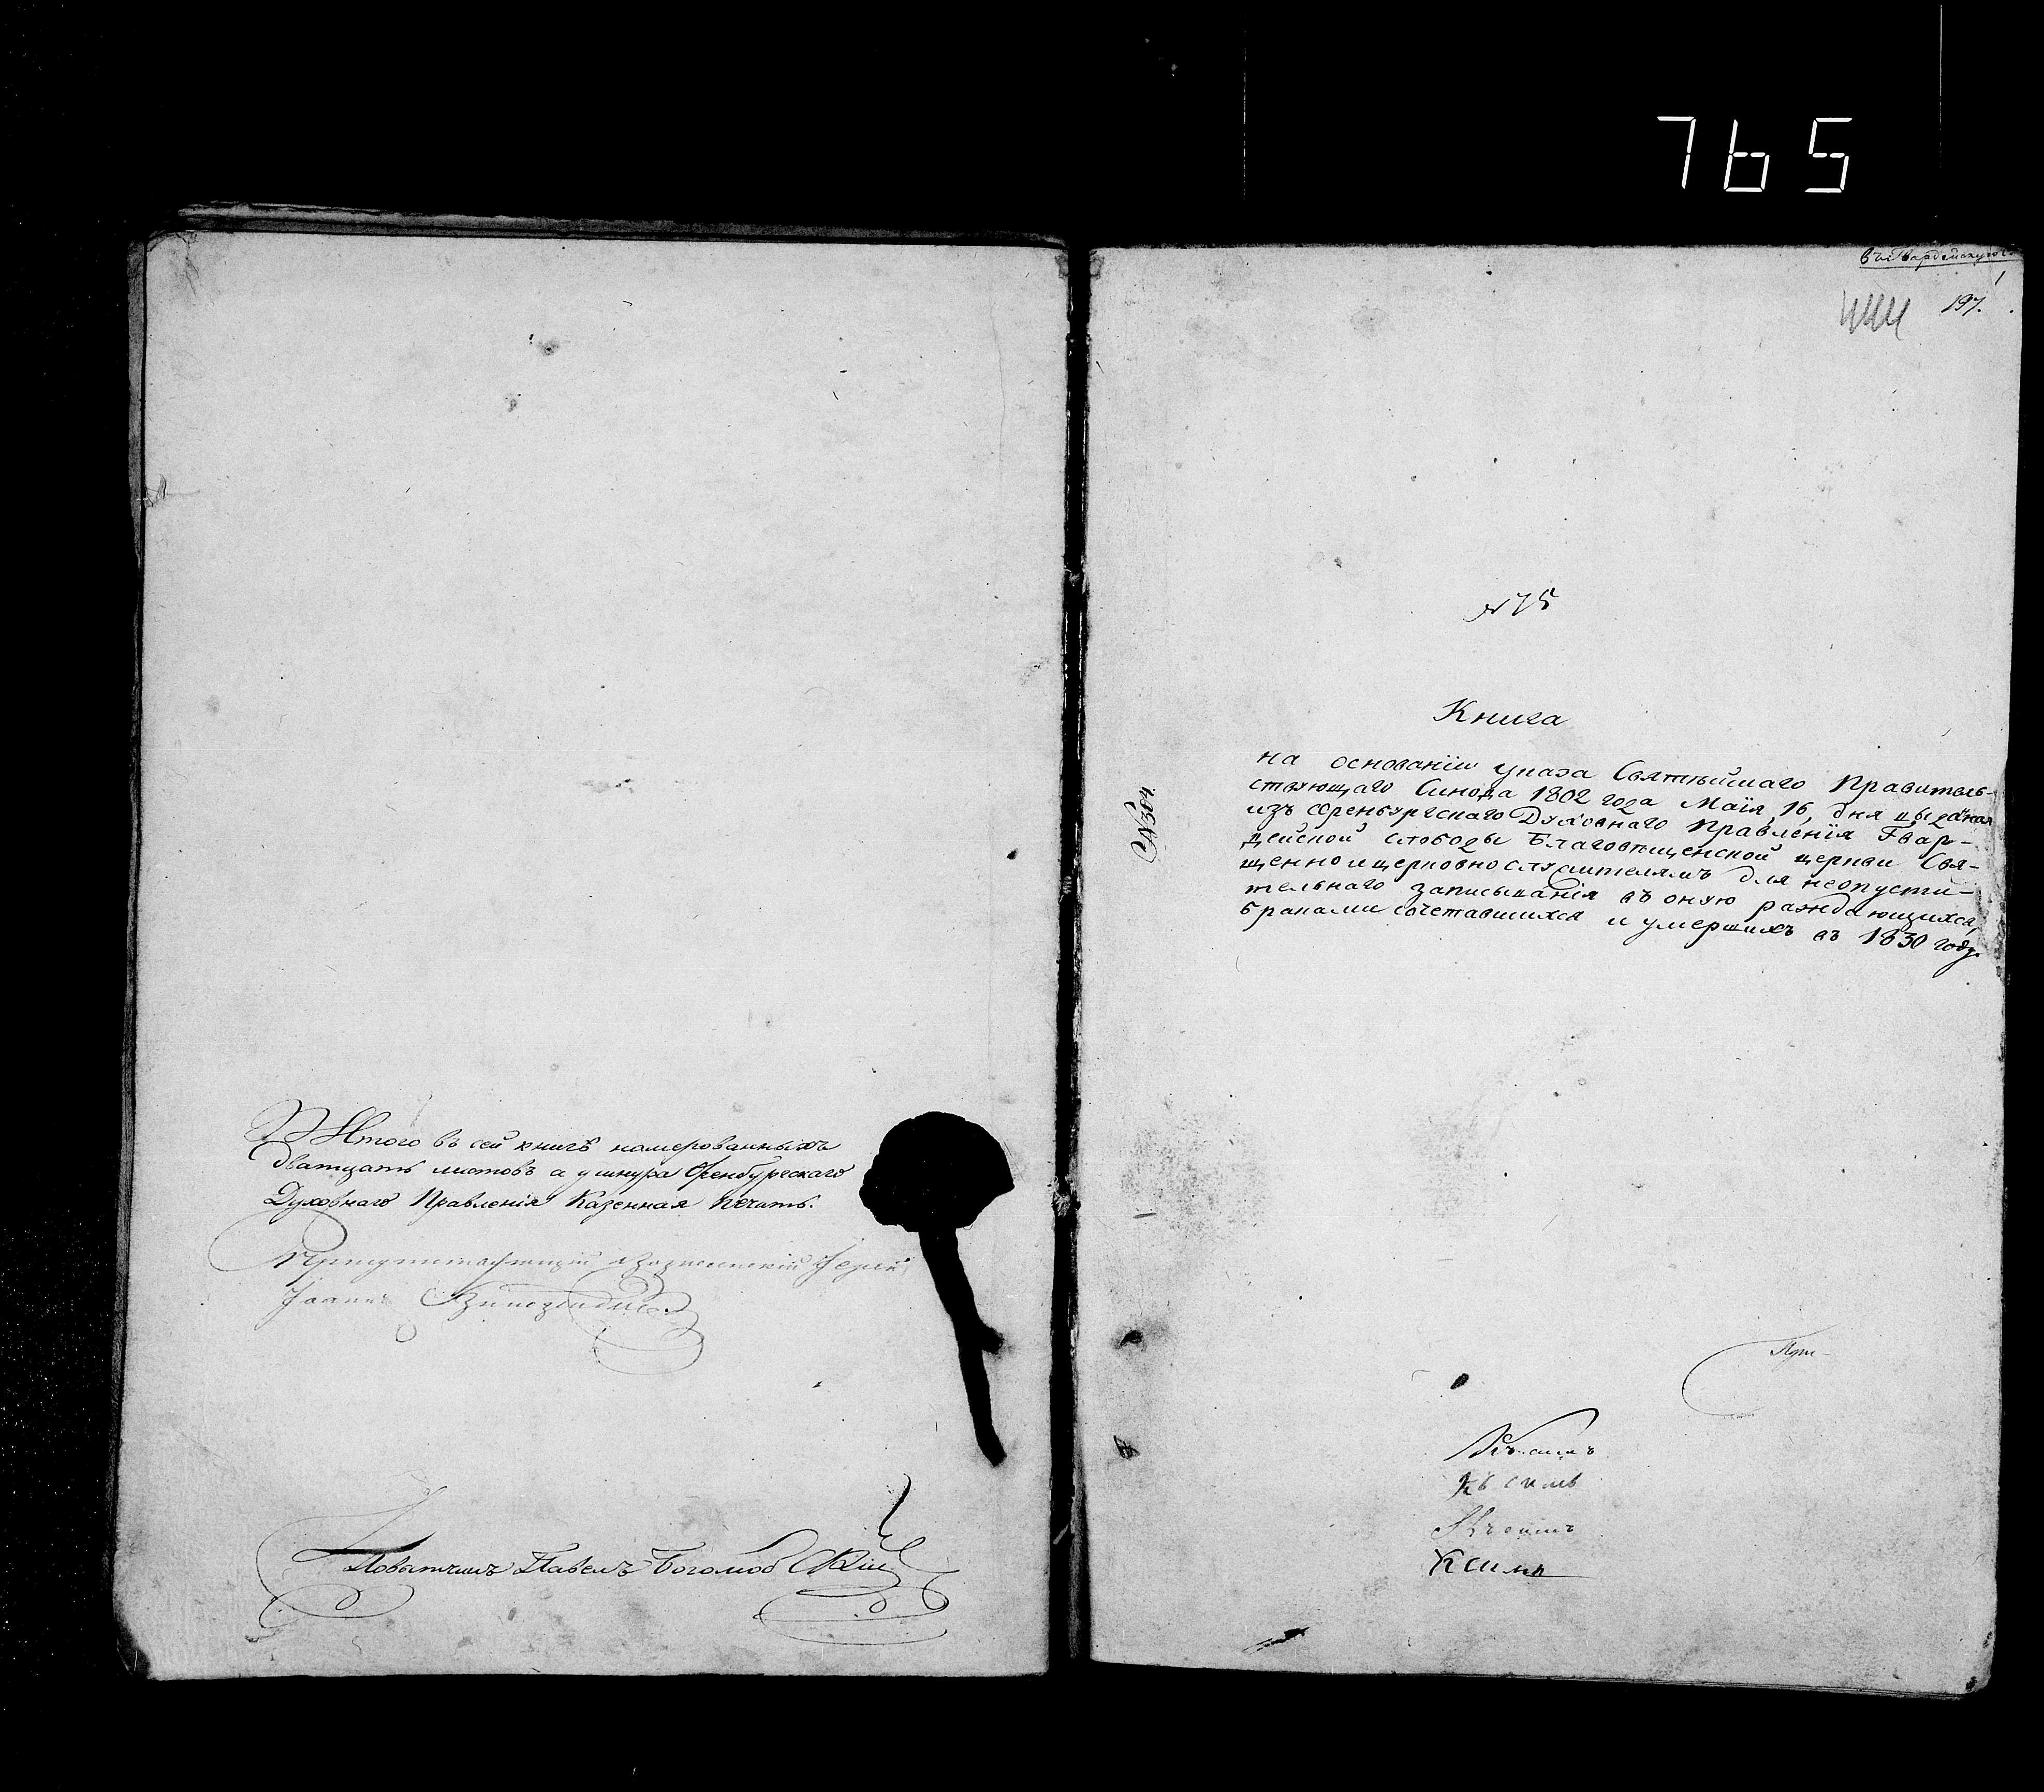 765
Итого въ сей книгѣ намерованныхъ
дватцать листовъ а у шнура Оренбургскаго
Духовнаго Правленія Казенная печать.
Іоаннъ
Повытчикъ Павелъ Боголюбскій
въ Гвардейскую
1
197.
№ 75
№ 304.
Книга
на основаніи указа Святѣйшаго Правитель-
ствующаго Синода 1802 года Маія, 16, дня выданая
изъ Оренбургскаго Духовнаго Правленія Гвар-
дейской слободы Благовѣщенской церкви Свя-
щенно и церковнослужителямъ для неопусти-
тельнаго записыванія въ оную раждающихся,
браками сочетавшихся и умершихъ въ 1830 году.